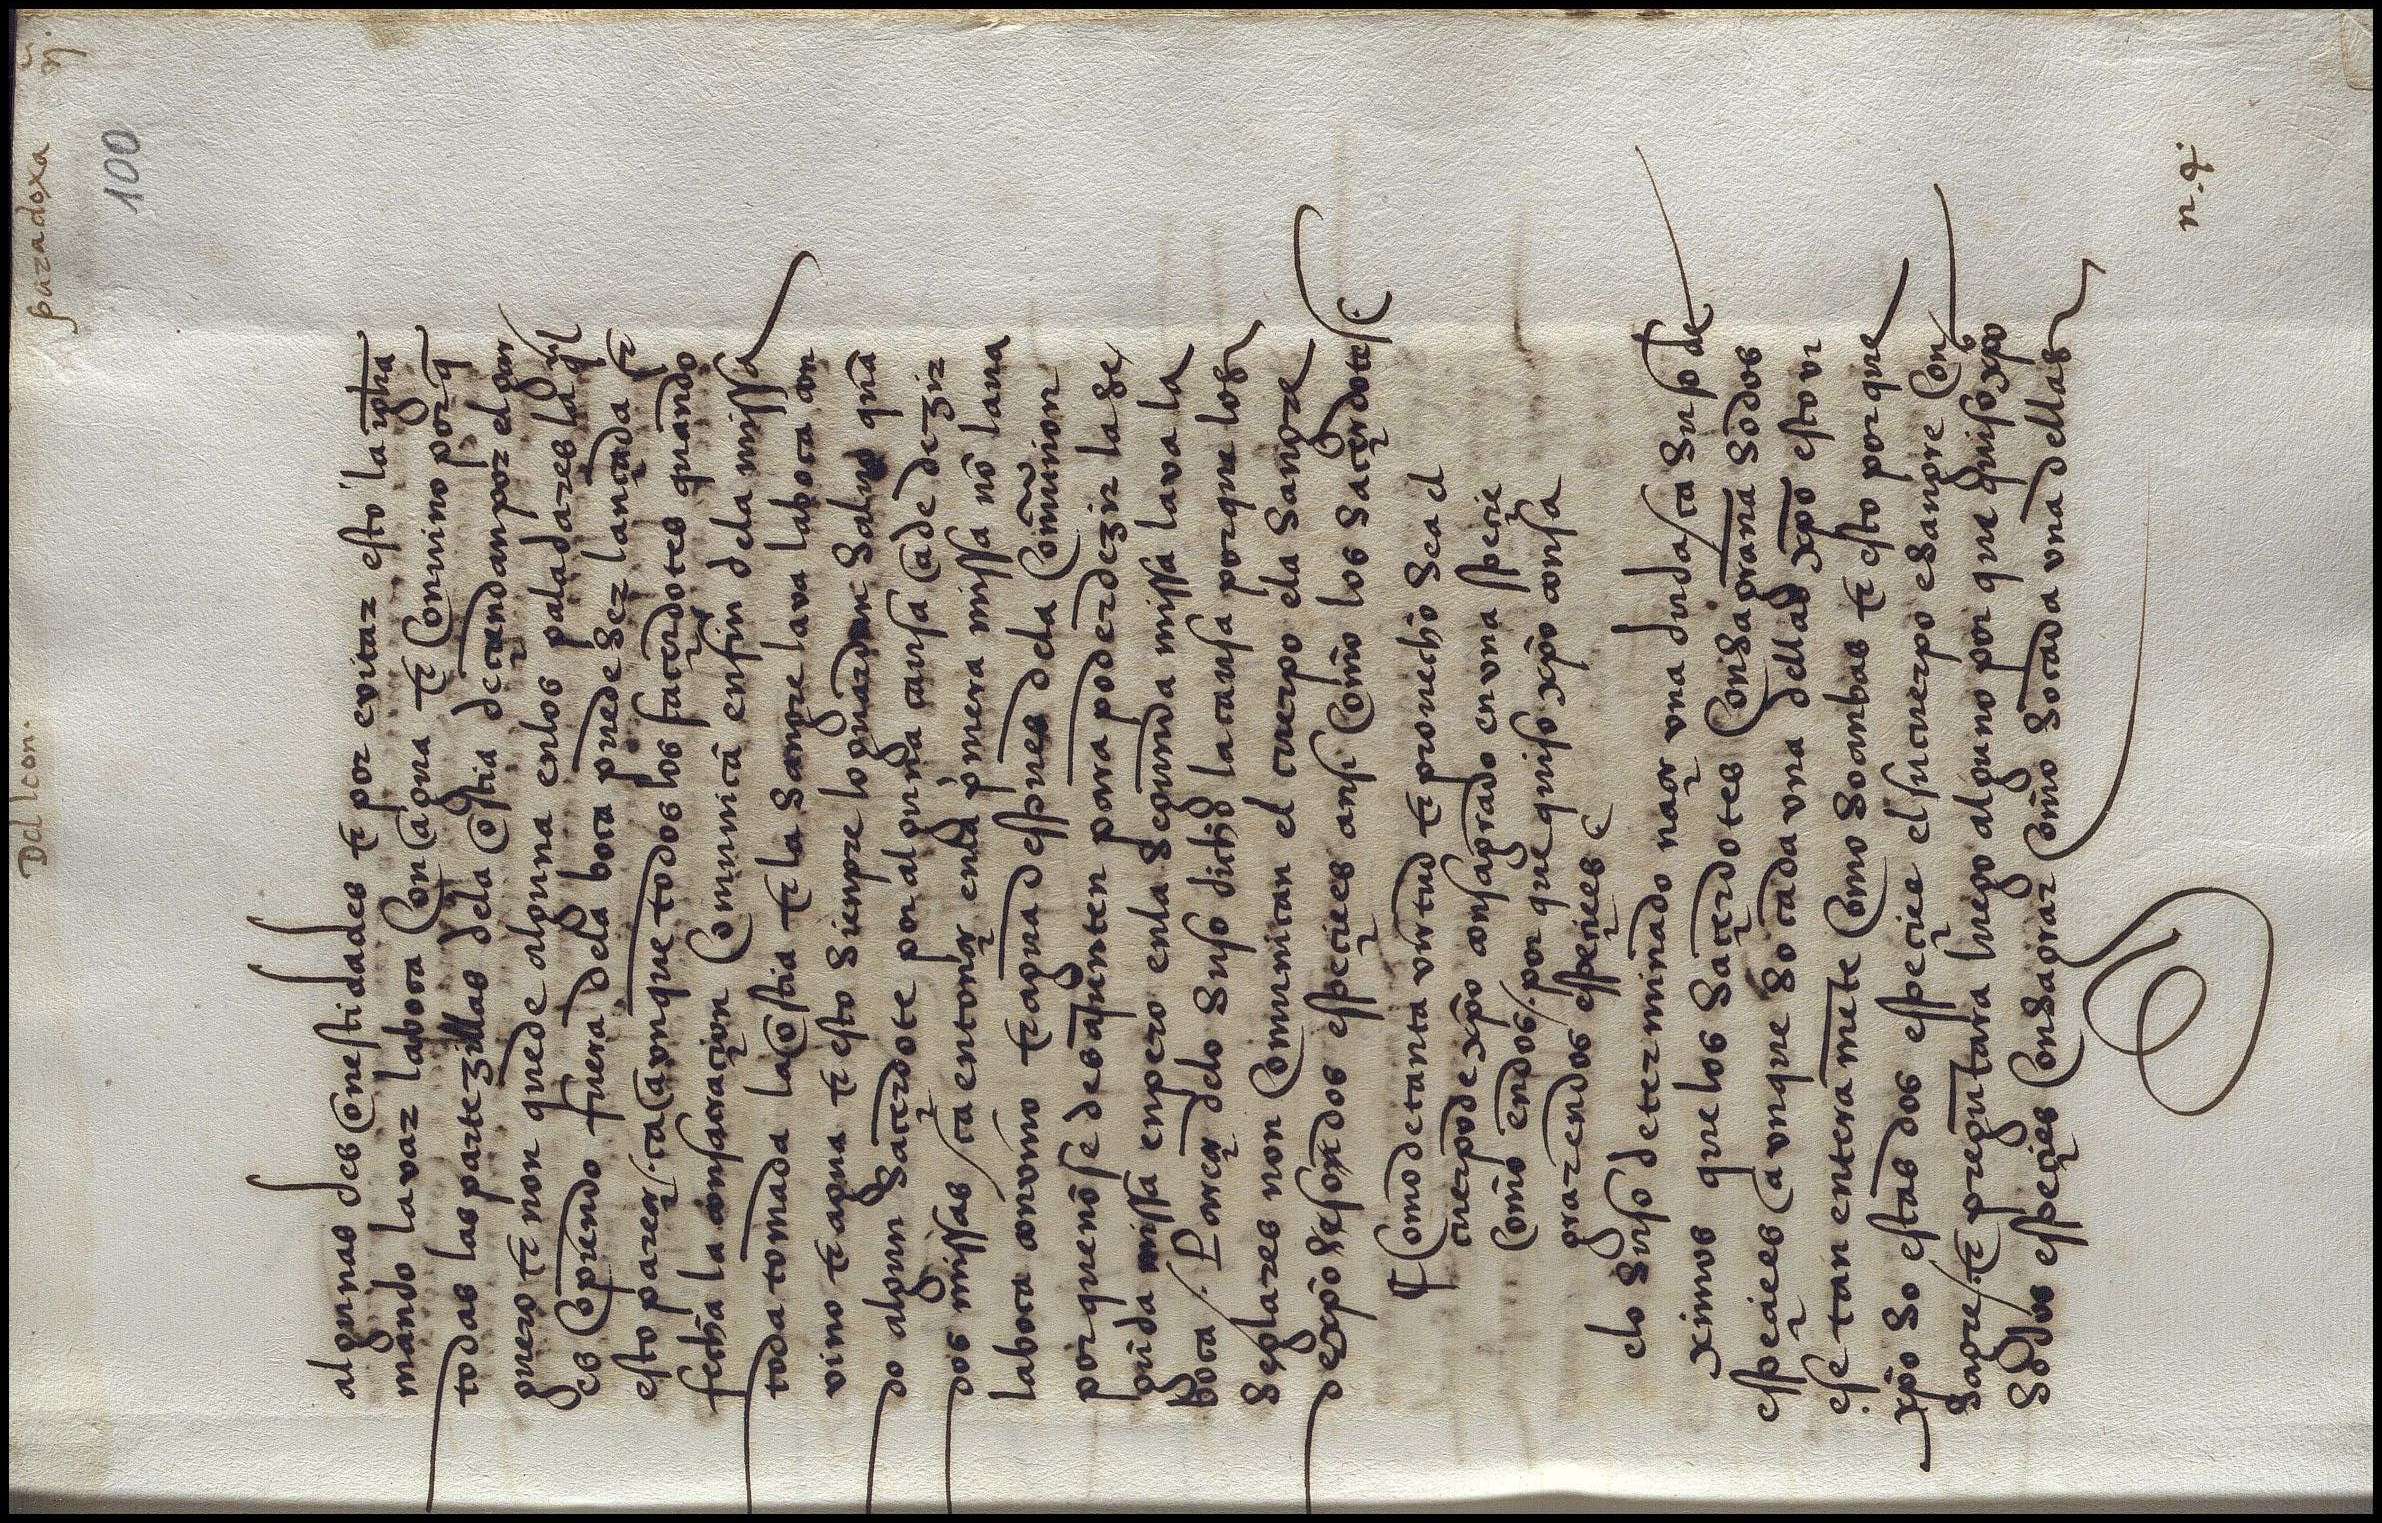 Del con. paradoxa v.
100
algunas des onestidades τ por evitar esto la vr̃a
mando lavar la boca con agua τ con vino por q̃
todas las partezillas dela ostia deciendan por el gar
guero τ non quede alguna enlos paladares la q̃l
es cop̃endo fuera dela boca puede ser lançada τ
esto pareçe / ca aunque todos los saçerdotes quando
fecha la consacraçion comunicã en fin dela missa
toda tomada la ostia τ la sangre lava la boca con
vino τ agua τ esto sienpre lo guardan saluo quã
do algun saçerdote por alguna causa a de dezir
dos missas / ca entonçe enla p̃mera missa nõ laua
la boca con vino τ agua despues dela comunion
por que nõ se desayunten para poder dezir la se
gũda missa enpero enla segunda missa lava la
boca /. Pareçe delo suso dicho la causa porque los
seglares non comunican el cuerpo ela sangre
de xp̃o so dos espeçies ansi como los saçerdotes /.
¶ Como de tanta virtud τ prouecho sea el
cuerpo de xp̃o consagrado en vna speçie
como en dos /. por que quiso xp̃o consa
grar en dos espeçies /.
elo suso determinado naçe vna duda / ca suso de
ximos que los saçerdotes consagrana so dos
espeçies aunque so cada vna dellas xp̃o estovi
ese tan enteramẽte como so anbas τ esto por que
xp̃o so estas dos espeçies el su cuerpo e sangre con
sagre /. τ preguntara luego alguno por que quiso xp̃o
so dos espeçies consagrar como so cada vna dellas
n.4.